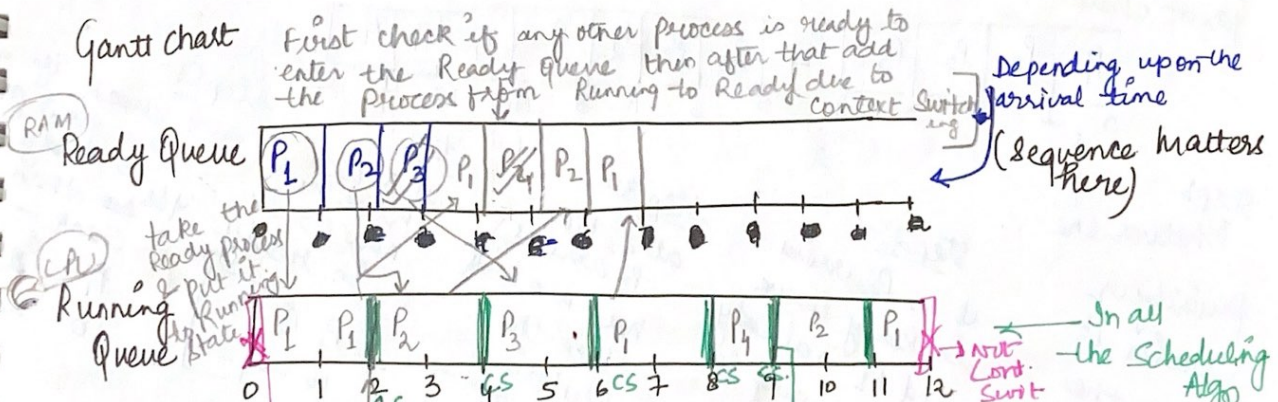 Gantt chart
First check if any other process is ready to
enter the Ready Queue then after that add
the process from Running to Ready due to
context Switch
ing
Depending upon the
arrival time
(Sequence Matters
here)
RAM
Ready Queue
P1 P2 P3 P1 P4 P2 P1
take the
Ready process
& put it
to Running
state
CPU
Running
Queue
P1 P1 P2 P3 P1 P4 P2 P1
0 1 2 3 4 CS 5 6 CS 7 8 CS 9 10 11 12
Not
Cont.
Swit
In all
the Scheduling
Algo